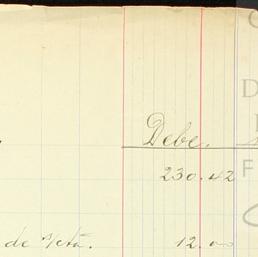 Debe.
230.42
de s/cta. 12.00